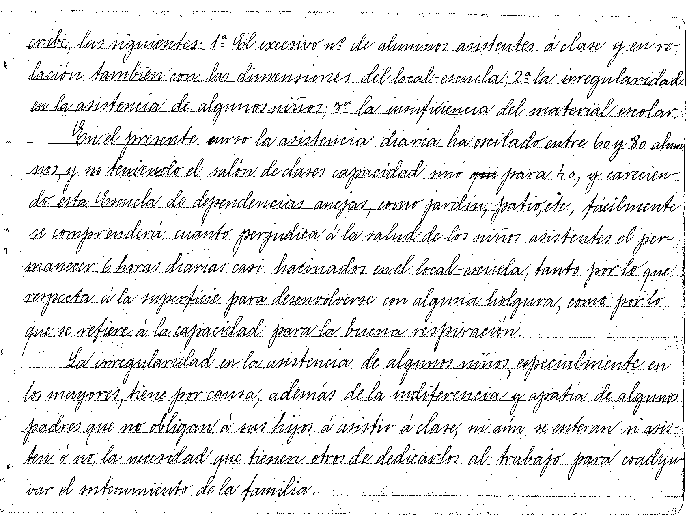 cribe, las siguientes: 1ª El excesivo nº de alumnos asistentes á clase y en re-
lación tambien con las dimensiones del local-escuela; 2ª la irregularidad
en la asistencia de algunos niños; 3ª la insuficiencia del material escolar.
En el presente curso la asistencia diaria ha oscilado entre 60 y 80 alum-
nos, y no teniendo el salón de clases capacidad sino para 40, y carecien-
do esta Escuela de dependencias anejas, como jardín, patio, etc, facilmente
se comprenderá cuanto perjudica á la salud de los niños asistentes el per-
manecer 6 horas diarias casi hacinados en el local-escuela, tanto por lo que
respecta á la superficie para desenvolverse con alguna holgura, como por lo
que se refiere á la capacidad para la buena respiración.
La irregularidad en la asistencia de algunos niños, especialmente en
los mayores, tiene por causa, además de la indiferencia y apatía de algunos
padres que no obligan á sus hijos á asistir á clase, ni aún se enteran si asis-
ten ó no, la necesidad que tienen otros de dedicarlos al trabajo para coadyu-
var el sostenimiento de la familia.